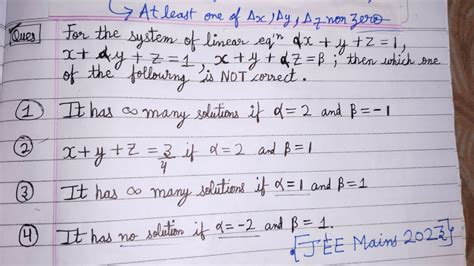 → At least one of Δx, Δy, Δz non zero
Ques For the system of linear eqⁿ αx + y + z = 1,
x + αy + z = 1, x + y + αz = β ; then which one
of the following is NOT correct.
① It has ∞ many solutions if α = 2 and β = -1
② x + y + z = 3/4 if α = 2 and β = 1
③ It has ∞ many solutions if α = 1 and β = 1
④ It has no solution if α = -2 and β = 1.
[JEE Mains 2023]